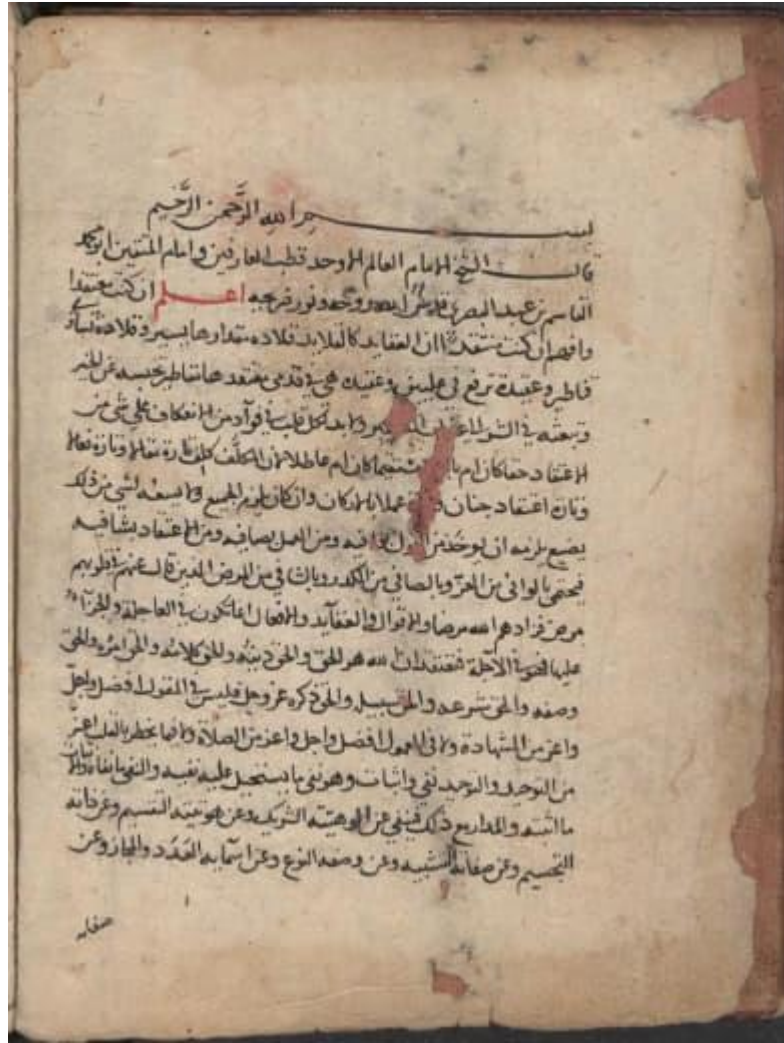 بسم الله الرَّحمن الرَّحيم
قال الشيخ الامام العالم الاوحد قطب العارفين وامام المتقين ابو محمد
القاسم بن عبد البصري قدس الله روحه ونور ضريحه اعلم ان كنت معتقدا
وافهم ان كنت منتقدا ان العقايد كالقلايد فقلادة مقدارها يسير وقلادة
وعقيدة ترفع في عليين وعقيدة هي في قدمي معتقدها
في ولا بد لكل قلب من الانعكاف على شي من
الاعتقاد حقا كان ام ام عاطلا لان المكلف كلف تارة مقالا وتارة فعالا
وتارة اعتقاد جنان عملا بالاركان وان كان يلزم الجميع ولا يسعه لشي من ذلك
يضيع يلزمه ان يوخذ من ومن العمل بصافيه ومن الاعتقاد بشافيه
بالوافي من وبالصافي من الكدر وبالشافي من المرض الذين قال عنهم في قلوبهم
مرض فزادهم الله مرضا والاقوال والعقايد والافعال انما تكون في العاجلة والجزا
عليها في الآجلة فنعتقد ان الله هو الحق والحق دينه والحق كلامه والحق امره والحق
وصفه والحق شرعه والحق سبيله والحق ذكره عز وجل فليس في المقول افضل واجل
واعز من الشهادة ولا في المعمول افضل واجل واعز من الصلاة ولا فيما يخطر بالقلب اعز
من التوحيد والتوحيد نفي واثبات وهو نفي ما يستحيل عليه نفسه والنفي ما نفاه والاثبات
ما اثبته والمدار مع ذلك فينفي عن الوهيته الشريك وعن هويته التقسيم وعن ذاته
التجسيم وعن صفاته التشبيه وعن وصفه النوع وعن اسمايه العدد والمجاز وعن
صفاته